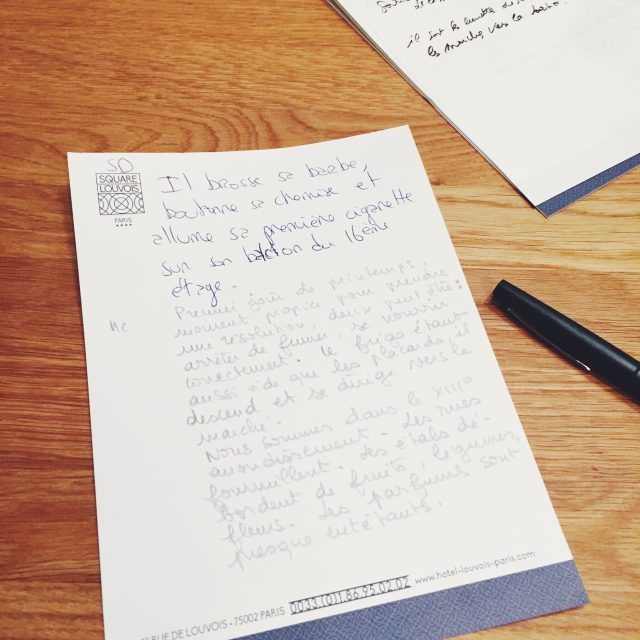 SD
SQUARE
LOUVOIS
PARIS
Il brosse sa barbe,
boutonne sa chemise et
allume sa première cigarette
sur son balcon du 16ème
étage.
Nc
Premier soir de printemps,
moment propice pour prendre
une résolution, deux peut être :
arrêter de fumer, se nourrir
correctement. Le frigo étant
aussi vide que les placards, il
descend et se dirige vers le
marché.
Nous sommes dans le XIII°
arrondissement - des rues
fourmillent - des étals dé-
bordent de fruits, légumes,
fleurs - les parfums sont
presque entêtants.
12 RUE DE LOUVOIS - 75002 PARIS 0033 (0)1 86 95 02 02 www.hotel-louvois-paris.com
il
les marches vers le